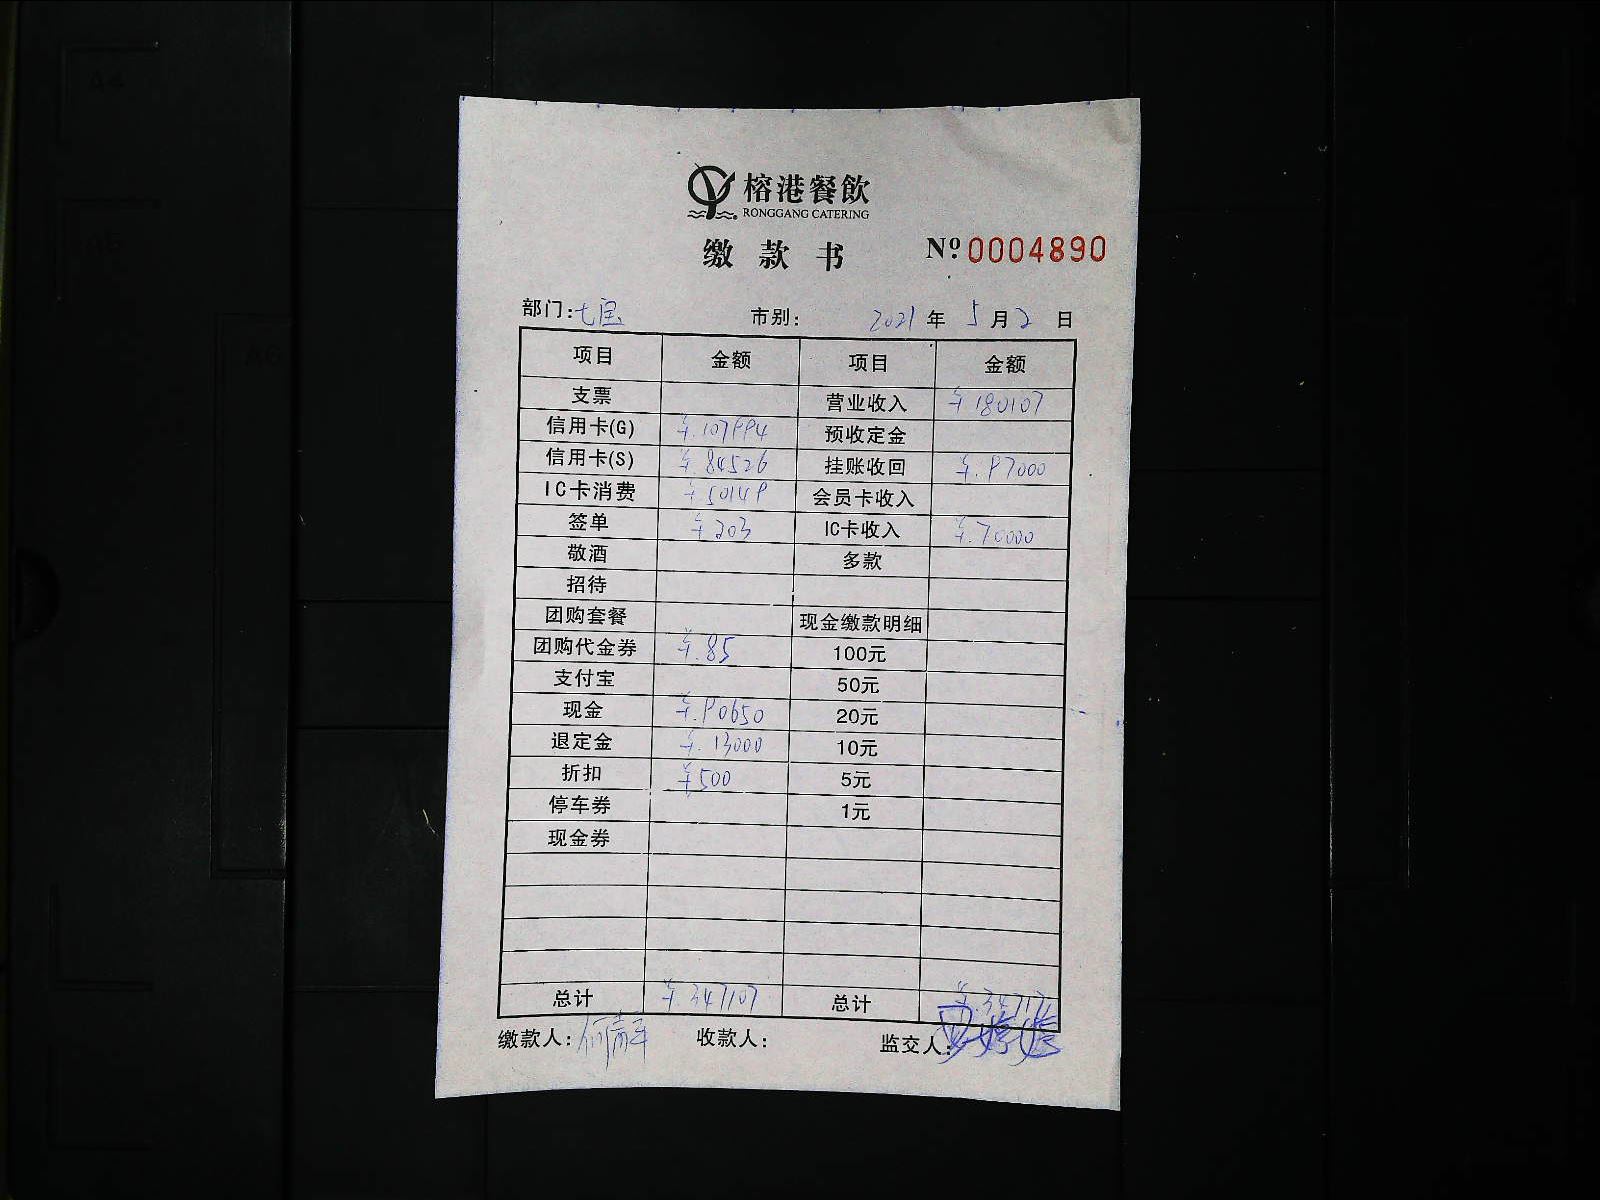 榕港餐飲
RONGGANG CATERING
缴款书 Nº 0004890
部门:七宝 市别: 2021 年 5 月 2 日
项目 金额 项目 金额
支票 营业收入 ¥180107
信用卡(G) ¥.107994 预收定金
信用卡(S) ¥.84526 挂账收回 ¥.97000
IC卡消费 ¥.50149 会员卡收入
签单 ¥203 IC卡收入 ¥.70000
敬酒 多款
招待
团购套餐 现金缴款明细
团购代金券 ¥.85 100元
支付宝 50元
现金 ¥.90650 20元
退定金 ¥.13000 10元
折扣 ¥500 5元
停车券 1元
现金券
总计 ¥.347107 总计
缴款人: 收款人: 监交人: